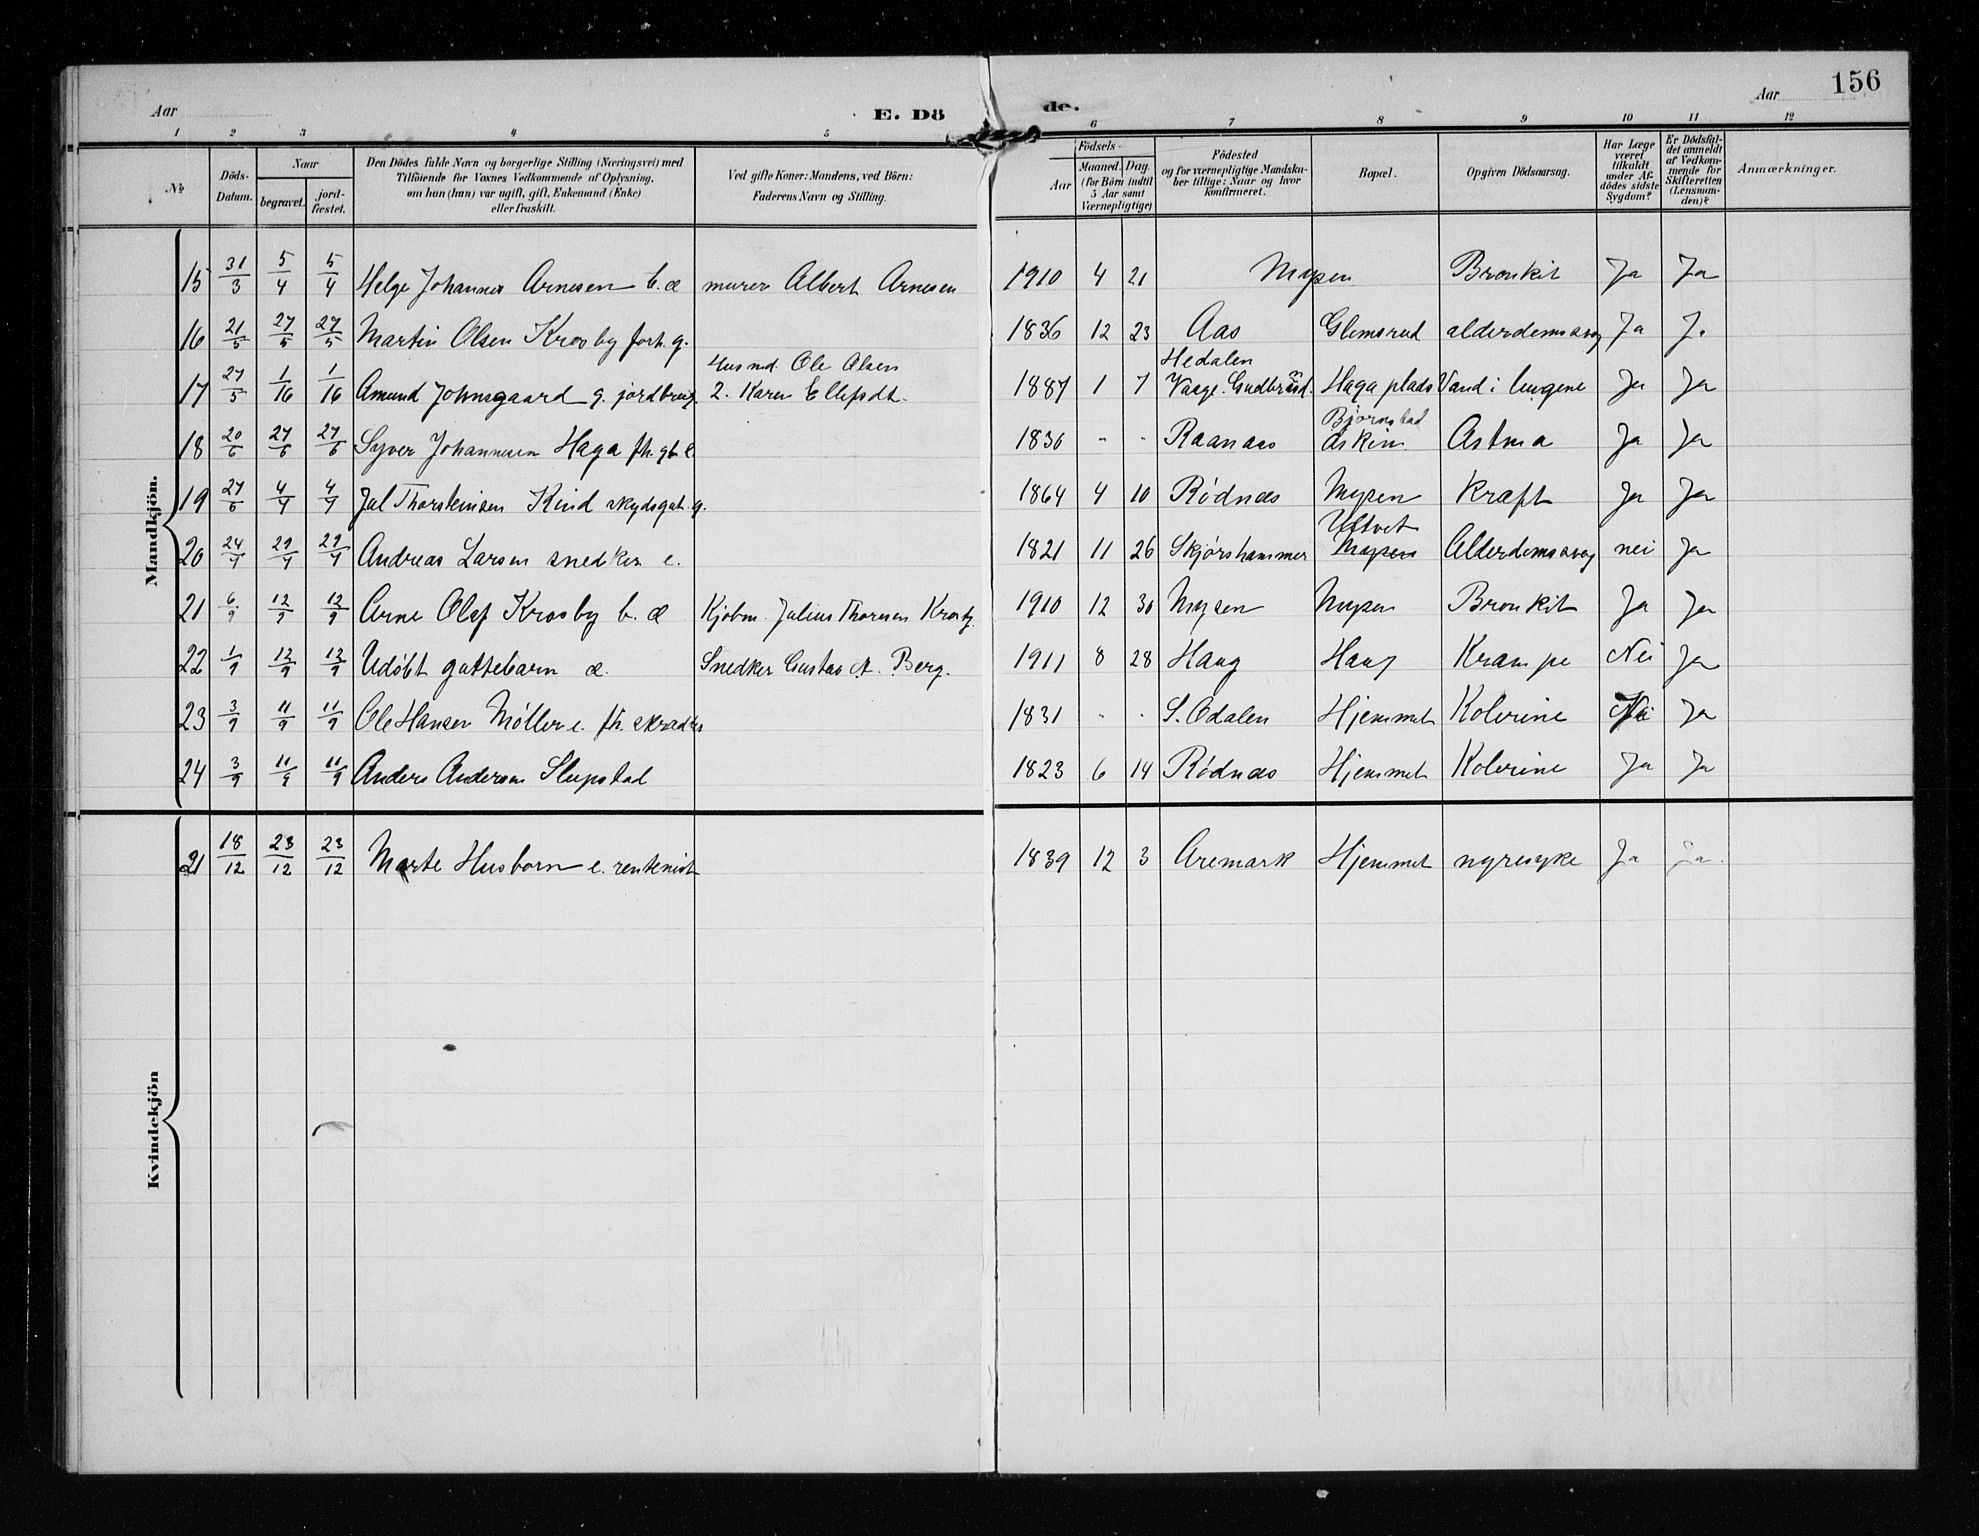 156
Aar
E. Dö
de.
Aar
1 2 3 4 5 6 7 8 9 10 11 12
No
Döds-
Datum.
Naar
begravet.
jord-
fæstet.
Den Dödes fulde Navn og borgerlige Stilling (Næringsvei) med
Tilföiende for Voxnes Vedkommende af Oplysning,
om hun (han) var ugift, gift, Enkemand (Enke)
eller fraskilt.
Ved gifte Koner: Mandens, ved Börn:
Faderens Navn og Stilling.
Födsels-
Aar
Maaned.
Dag.
(for Börn indtil
5 Aar samt
Værnepligtige)
Födested
og for værnepligtige Mandska-
ber tillige: Naar og hvor
konfirmeret.
Bopæl.
Opgiven Dödsaarsag.
Har Læge
været
tilkaldt
under Af-
dödes sidste
Sygdom?
Er Dödsfal-
det anmeldt
af Vedkom-
mende for
Skifteretten
(Lensman-
den)?
Anmærkninger.
Mandkjön.
15 31/3 5/4 5/4 Helge Johannes Arnesen b. æ murer Albert Arnesen 1910 4 21 Mysen Bronkit Ja Ja
16 21/5 27/5 27/5 Martin Olsen Krosby forh. g. 1836 12 23 Aas Glemsrud alderdomssvag Ja J.
Husmd Ole Olsen Hedalen
17 27/5 1/6 1/6 Amund Johnsgaard g. jordbrug. 2. Karen Ellefsdt. 1887 1 7 Vaage. Gudbrands. Haga plads Vand i lungene Ja Ja
Bjørnstad
18 20/6 27/6 27/6 Syver Johannesen Haga fh. gbr e. 1836 " " Raanaas Askim Astma Ja Ja
19 27/6 4/7 4/7 Jul Thorstensen Kind skydsgut. g. 1864 4 10 Rødnæs Mysen Kræft Ja Ja
20 24/7 29/7 29/7 Andreas Larsen snedker e. 1821 11 26 Skjørshammer Mysen Alderdomssvag nei Ja
21 6/9 12/9 12/9 Arne Olaf Krosby b. æ Kjøbm. Julius Thoresen Krosby. 1910 12 30 Mysen Mysen Bronkit Ja Ja
22 1/9 12/9 12/9 Udøbt guttebarn æ. Snedker Gustav A. Berg. 1911 8 28 Haug Haug Krampe Nei Ja
23 3/9 11/9 11/9 Ole Hansen Møller e. fh. skrædder 1831 " " S. Odalen Hjemmet Kolerine Nei Ja
24 3/9 11/9 11/9 Anders Andersen Slupstad 1823 6 14 Rødnæs Hjemmet Kolerine Ja Ja
Kvindekjön
21 18/12 23/12 23/12 Marte Husborn e. rentenist 1839 12 3 Aremark Hjemmet nyresyke Ja Ja.